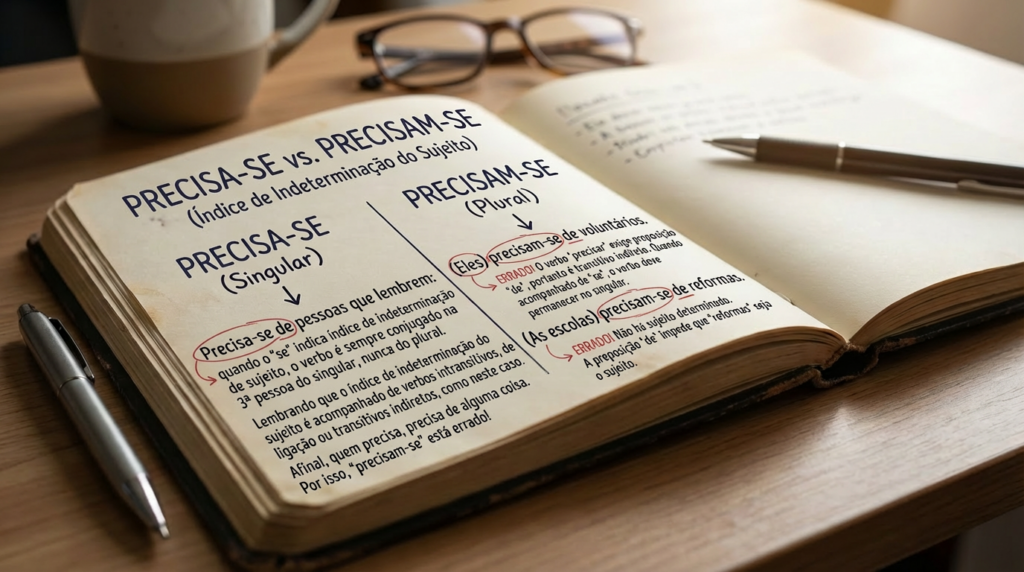 PRECISA-SE vs. PRECISAM-SE
(Índice de Indeterminação do Sujeito)
PRECISA-SE
(Singular)
Precisa-se de pessoas que lembrem:
quando o "se" indica indice de indeterminação
de sujeito, o verbo é sempre conjugado na
3ª pessoa do singular, nunca do plural.
Lembrando que o índice de indeterminação do
sujeito é acompanhado de verbos intransitivos, de
ligação ou transitivos indiretos, como neste caso.
Afinal, quem precisa, precisa de alguma coisa.
Por isso, "precisam-se" está errado!
PRECISAM-SE
(Plural)
(Eles) precisam-se de voluntários.
ERRADO! O verbo "precisar" exige proposição
"de", portanto é transitivo indireto. Quando
acompanhado de "se", o verbo deve
permanecer no singular.
(As escolas) precisam-se de reformas.
ERRADO! Não há sujeito determinado.
A preposição "de" impede que "reformas" seja
o sujeito.